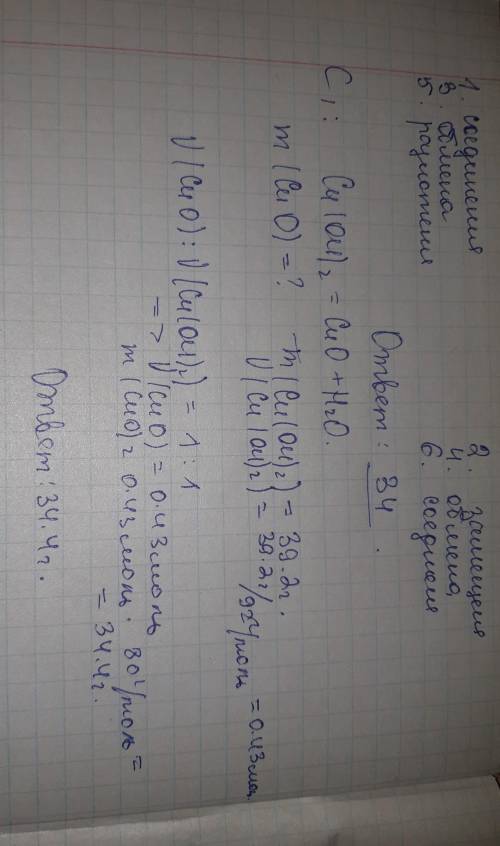 1. соединения
3. обмена
5. разложения
2. замещения
4. обмена
6. соединения
Ответ: 34.
C1: Cu(OH)2 = CuO + H2O.
m(CuO) = ? m(Cu(OH)2) = 39.2г.
ν(Cu(OH)2) = 39.2г/92г/моль = 0.43моль
ν(CuO) : ν(Cu(OH)2) = 1 : 1
=> ν(CuO) = 0.43моль
m(CuO) = 0.43моль · 80г/моль =
= 34.4г.
Ответ: 34.4г.